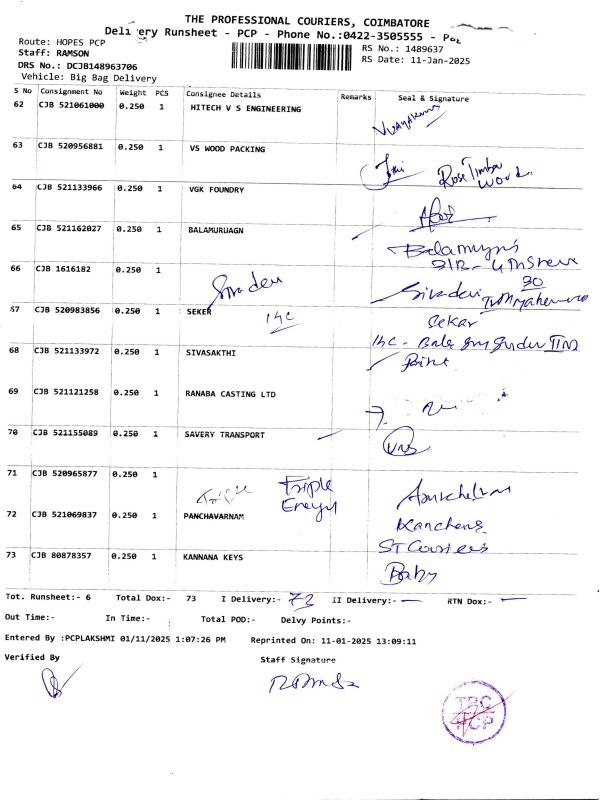 THE PROFESSIONAL COURIERS, COIMBATORE
Delivery Runsheet - PCP - Phone No.:0422-3505555 - Pag
Route: HOPES PCP
RS No.: 1489637
Staff: RAMSON
RS Date: 11-Jan-2025
DRS No.: DCJB148963706
Vehicle: Big Bag Delivery
S No Consignment No Weight PCS Consignee Details Remarks Seal & Signature
62 CJB 521061000 0.250 1 HITECH V S ENGINEERING
Vijayakumar
63 CJB 520956881 0.250 1 VS WOOD PACKING
Rose Timber
Work
64 CJB 521133966 0.250 1 VGK FOUNDRY
65 CJB 521162027 0.250 1 BALAMURUAGN
66 CJB 1616182 0.250 1
Sivadevi
Sivadevi
30
67 CJB 520983856 0.250 1 SEKER
14C
Sekar
14C - Bala
Point
68 CJB 521133972 0.250 1 SIVASAKTHI
69 CJB 521121258 0.250 1 RANABA CASTING LTD
70 CJB 521155089 0.250 1 SAVERY TRANSPORT
71 CJB 520965877 0.250 1
Triple
Energy
Arunchalam
72 CJB 521069837 0.250 1 PANCHAVARNAM
Kanchana
ST Couriers
73 CJB 80878357 0.250 1 KANNANA KEYS
Baby
Tot. Runsheet:- 6 Total Dox:- 73 I Delivery:- 73 II Delivery:- — RTN Dox:- —
Out Time:- In Time:- Total POD:- Delvy Points:-
Entered By :PCPLAKSHMI 01/11/2025 1:07:26 PM Reprinted On: 11-01-2025 13:09:11
Verified By Staff Signature
TPC
PCP